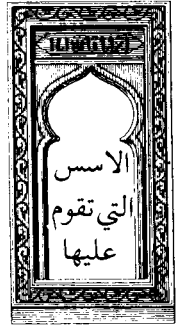 الاسس
التي تقوم
عليها